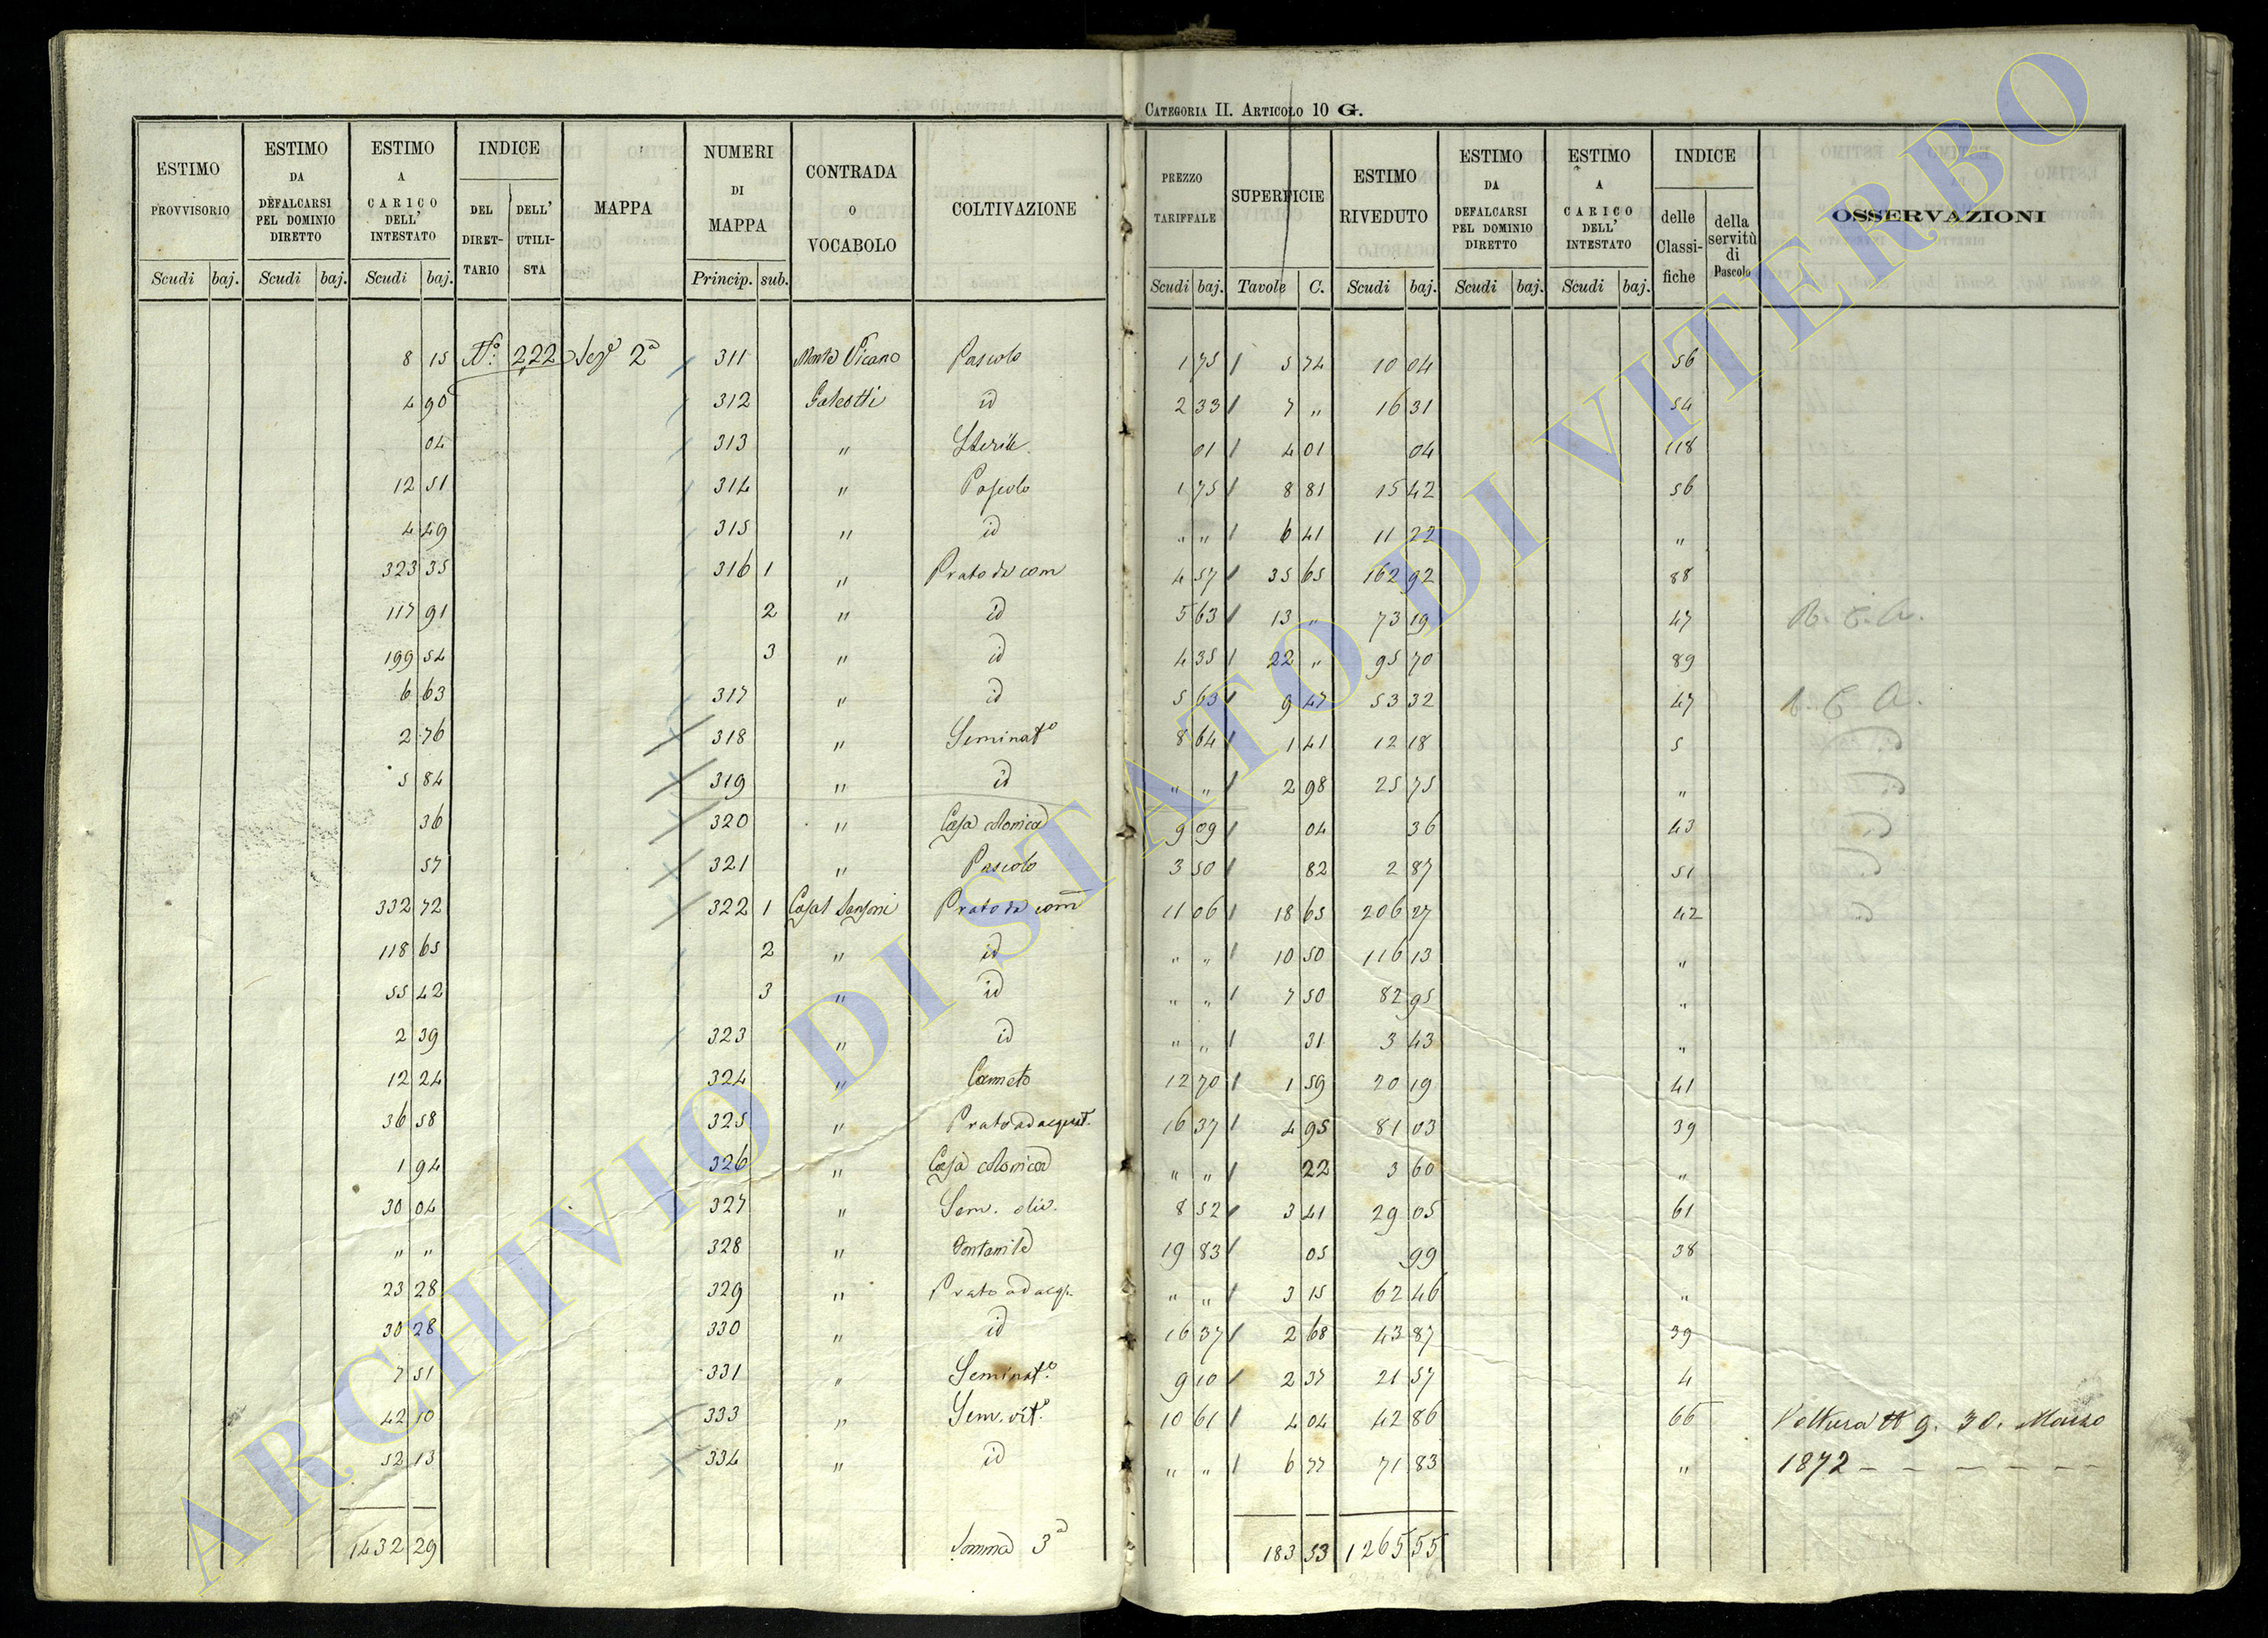 CATEGORIA II. ARTICOLO 10 G.
ESTIMO PROVVISORIO Scudi baj.
ESTIMO DA DEFALCARSI PEL DOMINIO DIRETTO Scudi baj.
ESTIMO A CARICO DELL' INTESTATO Scudi baj.
INDICE DEL DIRETTARIO DELL' UTILISTA
MAPPA
NUMERI DI MAPPA Princip. sub.
CONTRADA O VOCABOLO
COLTIVAZIONE
PREZZO TARIFFALE Scudi baj.
SUPERFICIE Tavole C.
ESTIMO RIVEDUTO Scudi baj.
ESTIMO DA DEFALCARSI PEL DOMINIO DIRETTO Scudi baj.
ESTIMO A CARICO DELL' INTESTATO Scudi baj.
INDICE delle Classifiche della servitù di Pascolo
OSSERVAZIONI
8 15 N.° 222 Sez.e 2ª 311 Monte Vicano Pascolo 1 75 5 74 10 04 56
4 90 312 Galeotti id 2 33 7 " 16 31 54
04 313 " Sterile 01 4 01 04 118
12 51 314 " Pascolo 1 75 8 81 15 42 56
4 49 315 " id " " 6 41 11 22 "
323 35 316 1 " Prato da com 4 57 35 65 162 92 88
117 91 2 " id 5 63 13 " 73 19 47
199 54 3 " id 4 35 22 " 95 70 89
6 63 317 " id 5 63 9 47 53 32 47
2 76 318 " Seminato 8 64 1 41 12 18 5
5 84 319 " id " " 2 98 25 75 "
36 320 " Casa colonica 9 09 04 36 43
57 321 " Pascolo 3 50 82 2 87 51
332 72 322 1 Casal Sansoni Prato da com 11 06 18 65 206 27 42
118 65 2 " id " " 10 50 116 13 "
55 42 3 " id " " 7 50 82 95 "
2 39 323 " id " " 31 3 43 "
12 24 324 " Canneto 12 70 1 59 20 19 41
36 58 325 " Prato adacquat. 16 37 4 95 81 03 39
1 94 326 " Casa colonica " " 22 3 60 "
30 04 327 " Sem. oliv. 8 52 3 41 29 05 61
" " 328 " Fontanile 19 83 05 99 38
23 28 329 " Prato adacq. " " 3 15 62 46 "
30 28 330 " id 16 37 2 68 43 87 39
7 51 331 " Seminat.o 9 10 2 37 21 57 4
42 10 333 " Sem. vit.o 10 61 4 04 42 86 66 Voltura N 9. 30. Marzo
52 13 334 " id " " 6 77 71 83 " 1872 - - - - - -
1432 29 Somma 3ª 183 53 1265 55
ARCHIVIO DI STATO DI VITERBO